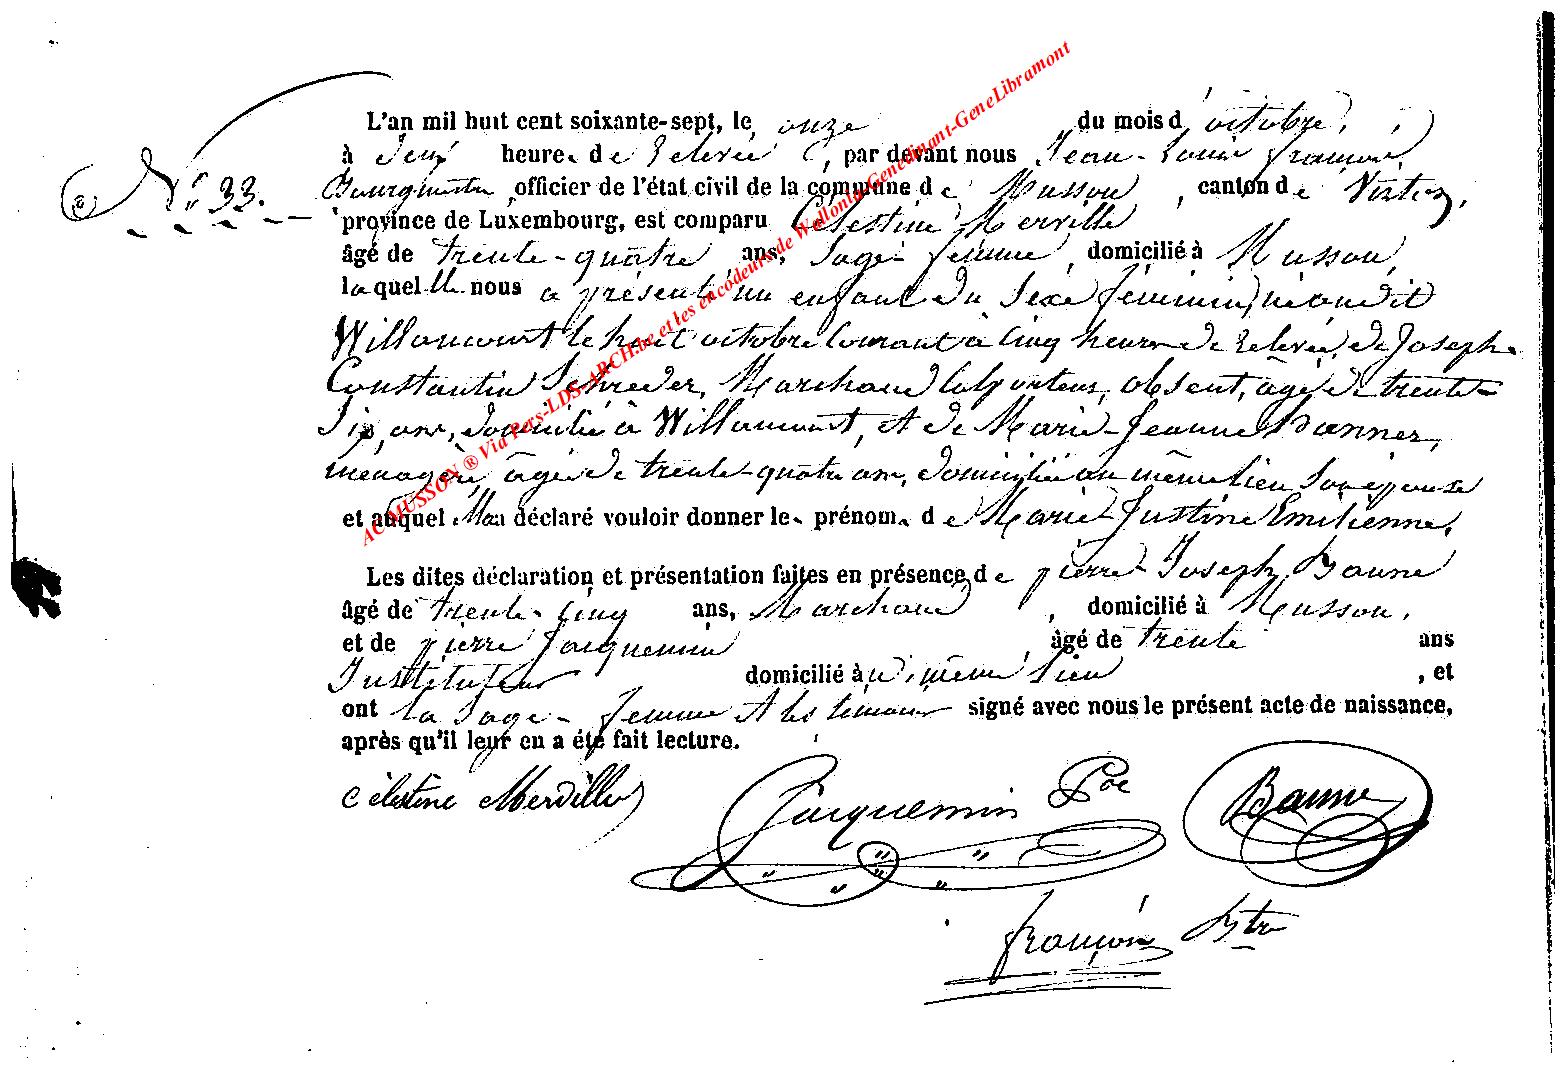 L'an mil huit cent soixante-sept, le onze du mois d'octobre,
à deux heures de relevée, par devant nous Jean-Louis françois
Bourgmestre, officier de l'état civil de la commune de Musson, canton de Virton,
N° 33.
province de Luxembourg, est comparu Célestine Merville
âgé de trente-quatre ans, Sage-femme, domicilié à Musson,
laquelle nous a présenté un enfant du Sexe féminin, né audit
Willancourt le huit octobre Courant à Cinq heures de relevée, de Joseph
Constantin Schreder, Marchand Colporteur, absent, âgé de trente-
Six, ans, domicilié à Willancourt, et de Marie-Jeanne
ménagère, âgée de trente-quatre ans, domiciliée au même lieu Son épouse
et auquel elle a déclaré vouloir donner les prénoms de Marie-Justine Emilienne.
Les dites déclaration et présentation faites en présence de pierre-Joseph Baune
âgé de trente-Cinq ans, Marchand, domicilié à Musson,
et de pierre Jacquemin, âgé de trente ans
Instituteur domicilié au même lieu, et
ont la Sage-femme et les témoins signé avec nous le présent acte de naissance,
après qu'il leur en a été fait lecture.
Célestine Merville Jacquemin Pre Baune
françois Bstre
AC MUSSON ® Via Pers-LDS-ARCH.be et les encodeurs de Wallonia-Genedinant-GeneLibramont